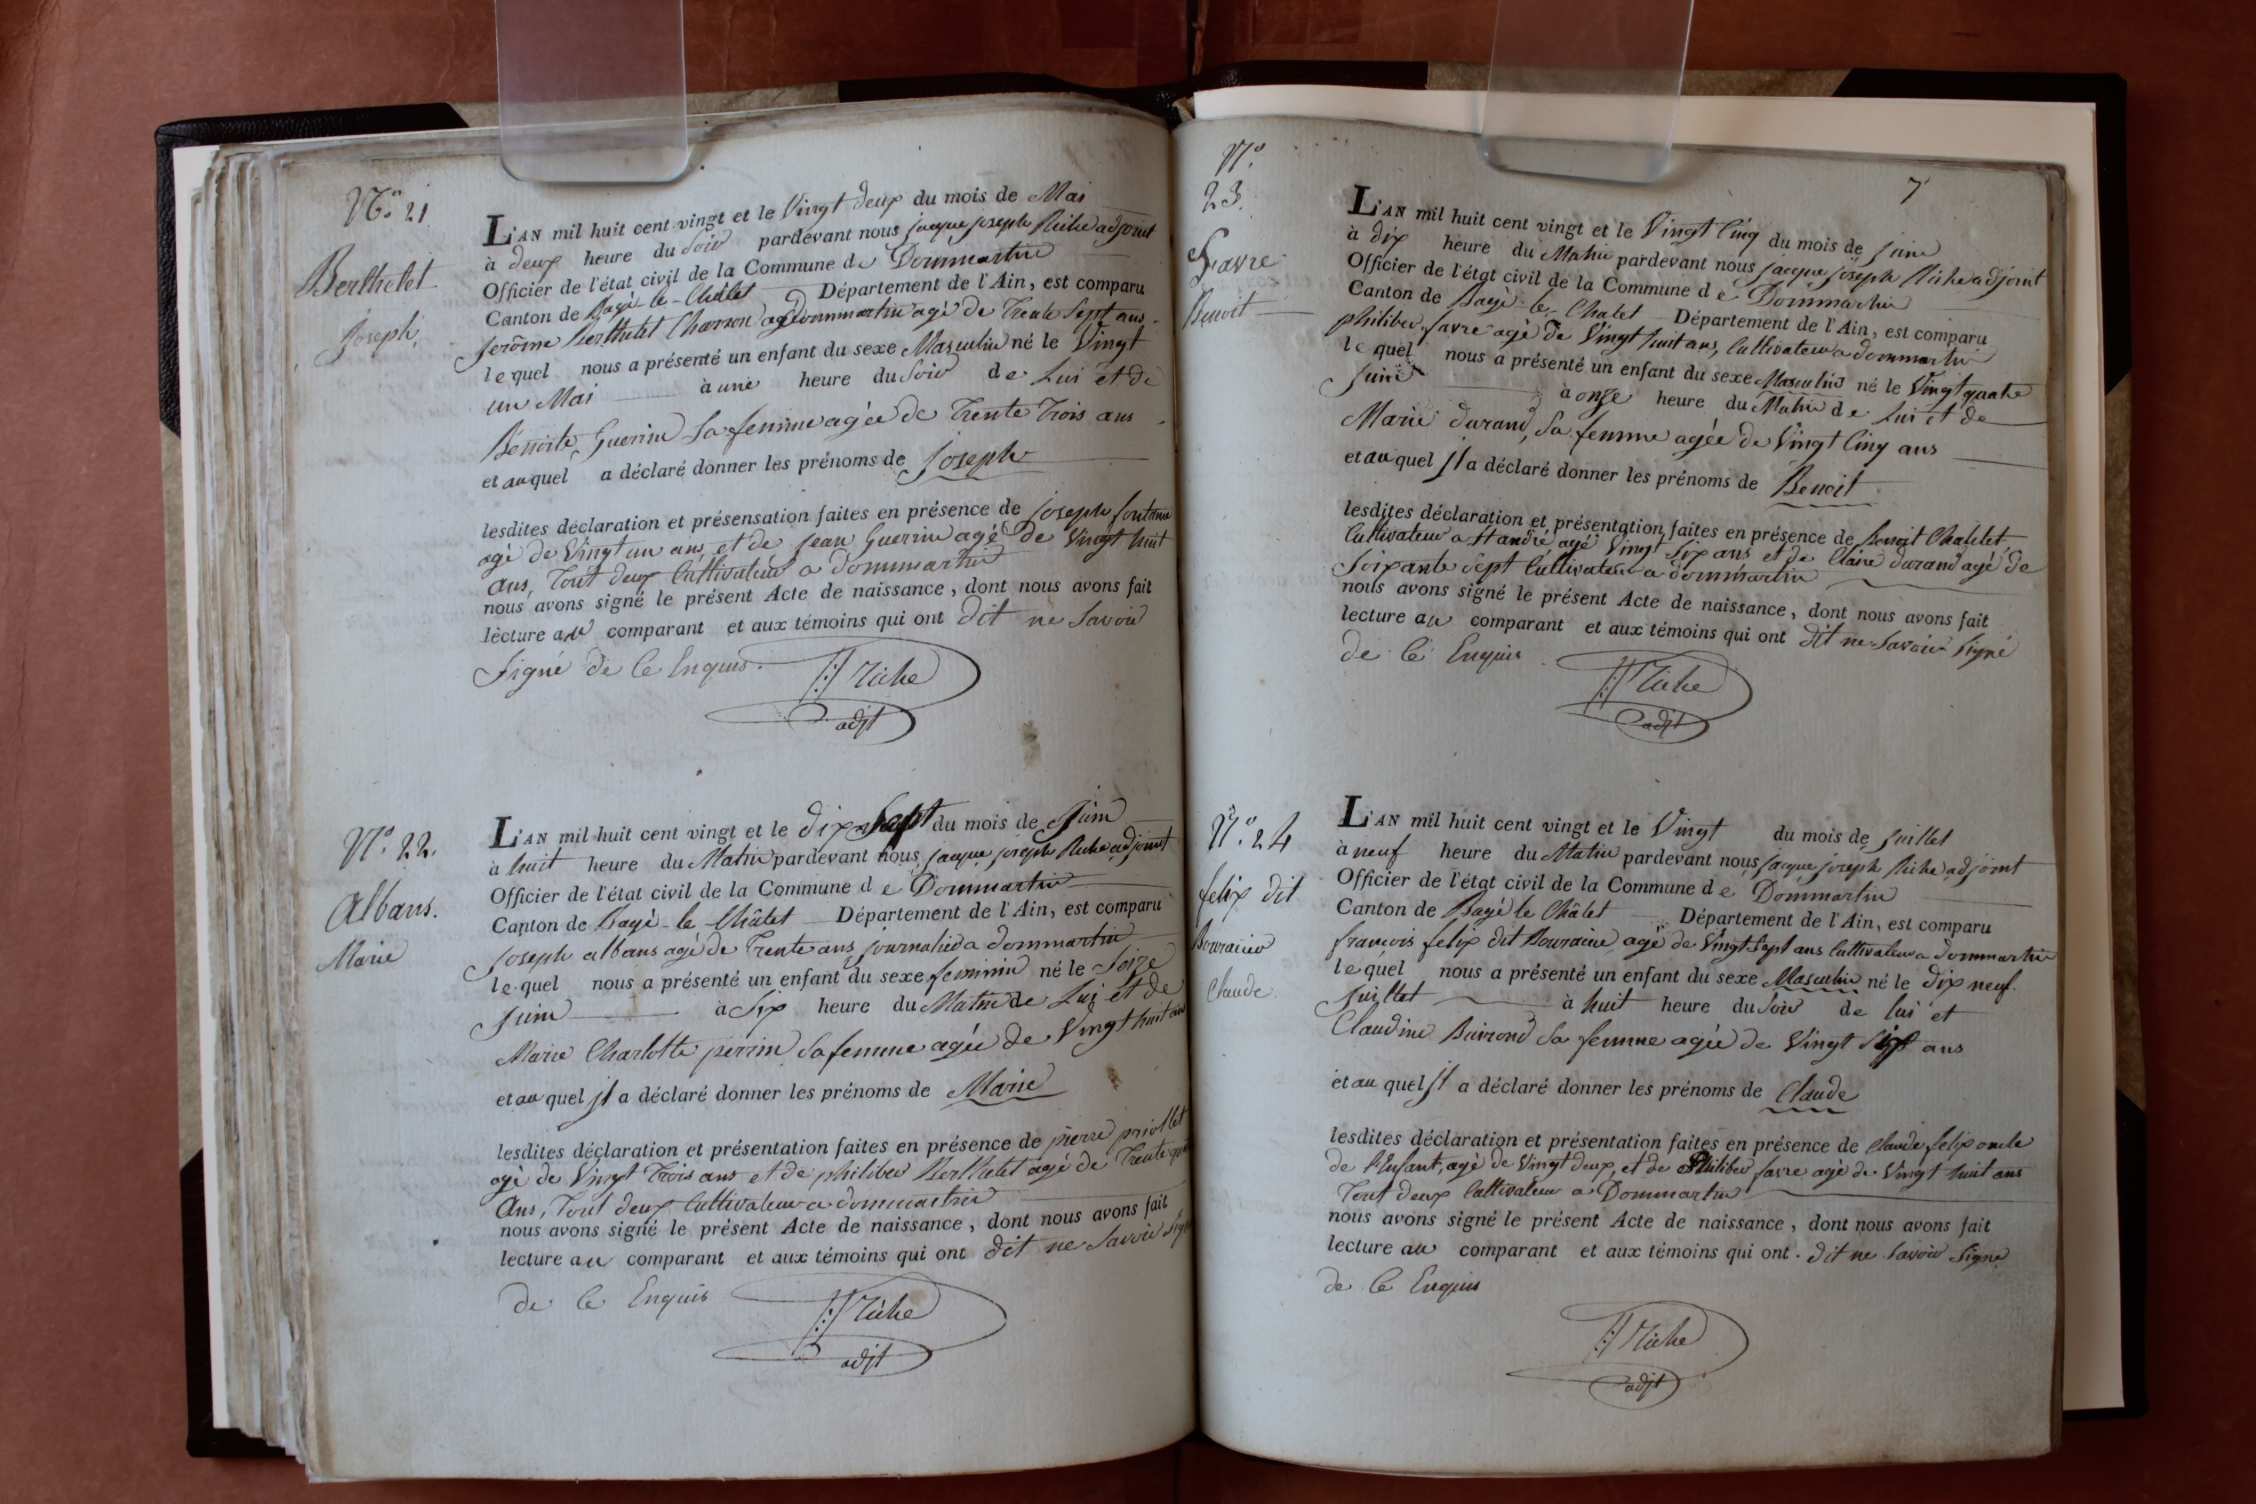 N.° 21
Berthelet
Joseph
L'AN mil huit cent vingt et le Vingt deux du mois de Mai
à deux heure du Soir pardevant nous jacque joseph Riche adjoint
Officier de l'état civil de la Commune de Dommartin
Canton de Bagé-le-Châlet Département de l'Ain, est comparu
Jerôme Berthelet Charron a dommartin agé de Trente Sept ans
lequel nous a présenté un enfant du sexe Masculin né le Vingt
un Mai à une heure du Soir de Lui et de
Benoite Guerin Sa femme agée de Trente Trois ans
et au quel a déclaré donner les prénoms de Joseph
lesdites déclaration et présensation faites en présence de joseph fontaine
agé de Vingt un ans et de jean Guerin agé de Vingt huit
ans, Tout deux Cultivateur a dommartin
nous avons signé le présent Acte de naissance, dont nous avons fait
lecture au comparant et aux témoins qui ont dit ne Savoir
Signé de Ce Enquis.
Riche
adjt
N.° 22.
Albans.
Marie
L'AN mil huit cent vingt et le dix Sept du mois de Juin
à huit heure du Matin pardevant nous jacque joseph Riche adjoint
Officier de l'état civil de la Commune de Dommartin
Canton de Bagé-le-Châlet Département de l'Ain, est comparu
Joseph albans agé de Trente ans journalier a dommartin
lequel nous a présenté un enfant du sexe feminin né le Seize
Juin à Six heure du Matin de Lui et de
Marie Charlotte perrin Sa femme agée de Vingt huit ans
et au quel jl a déclaré donner les prénoms de Marie
lesdites déclaration et présentation faites en présence de pierre priollet
agé de Vingt Trois ans et de philiber Berthelet agé de Trente
Ans, Tout deux Cultivateur a dommartin
nous avons signé le présent Acte de naissance, dont nous avons fait
lecture au comparant et aux témoins qui ont dit ne Savoir
de Ce Enquis
Riche
adjt
7
N.°
23.
Favre
Benoit
L'AN mil huit cent vingt et le Vingt Cinq du mois de Juin
à dix heure du Matin pardevant nous jacque joseph Riche adjoint
Officier de l'état civil de la Commune de Dommartin
Canton de Bagé-le-Chalet Département de l'Ain, est comparu
philiber favre agé de Vingt huit ans, Cultivateur a dommartin
lequel nous a présenté un enfant du sexe Masculin né le Vingt quatre
Juin à onze heure du Matin de Lui et de
Marie durand, Sa femme agée de Vingt Cinq ans
et au quel Jl a déclaré donner les prénoms de Benoit
lesdites déclaration et présentation faites en présence de Benoit Chatelet
Cultivateur a St andré agé Vingt Six ans et de Claire durand agé de
Soixante Sept Cultivateur a dommartin
nous avons signé le présent Acte de naissance, dont nous avons fait
lecture au comparant et aux témoins qui ont dit ne Savoir Signé
de Ce Enquis
Riche
adjt
N.° 24
felix dit
Bouraine
Claude
L'AN mil huit cent vingt et le Vingt du mois de Juillet
à neuf heure du Matin pardevant nous jacque joseph Riche adjoint
Officier de l'état civil de la Commune de Dommartin
Canton de Bagé le Châlet Département de l'Ain, est comparu
francois felix dit Bouraine, agé de Vingt Sept ans Cultivateur a dommartin
lequel nous a présenté un enfant du sexe Masculin né le dix neuf
Juillet à huit heure du Soir de lui et
Claudine Sa femme agée de Vingt ans
et au quel Jl a déclaré donner les prénoms de Claude
lesdites déclaration et présentation faites en présence de Claude felix oncle
de l'Enfant, agé de Vingt deux, et de Philiber favre agé de Vingt huit ans
Tout deux Cultivateur a Dommartin
nous avons signé le présent Acte de naissance, dont nous avons fait
lecture au comparant et aux témoins qui ont. dit ne Savoir Signé
de Ce Enquis
Riche
adjt